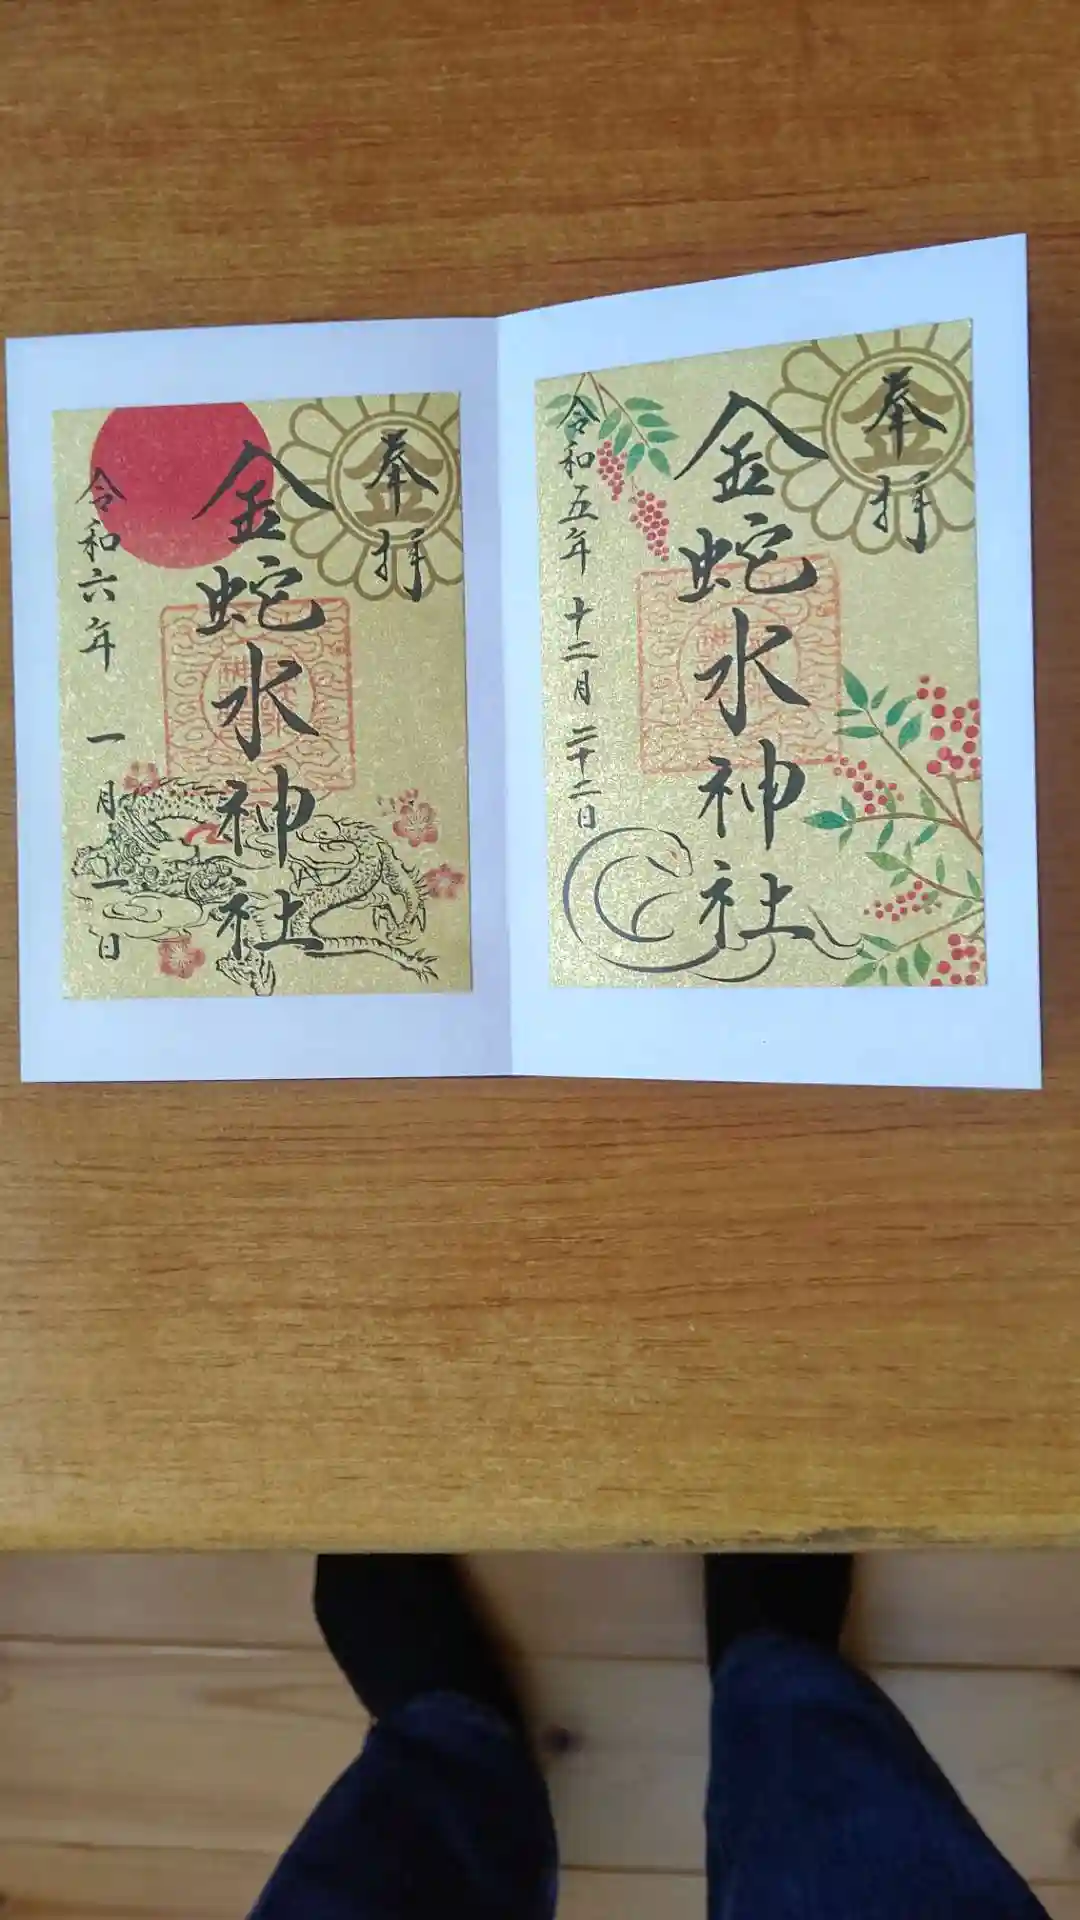 奉拝
金
金蛇水神社
令和五年 十二月 二十二日
奉拝
金
金蛇水神社
令和六年 一月 一日